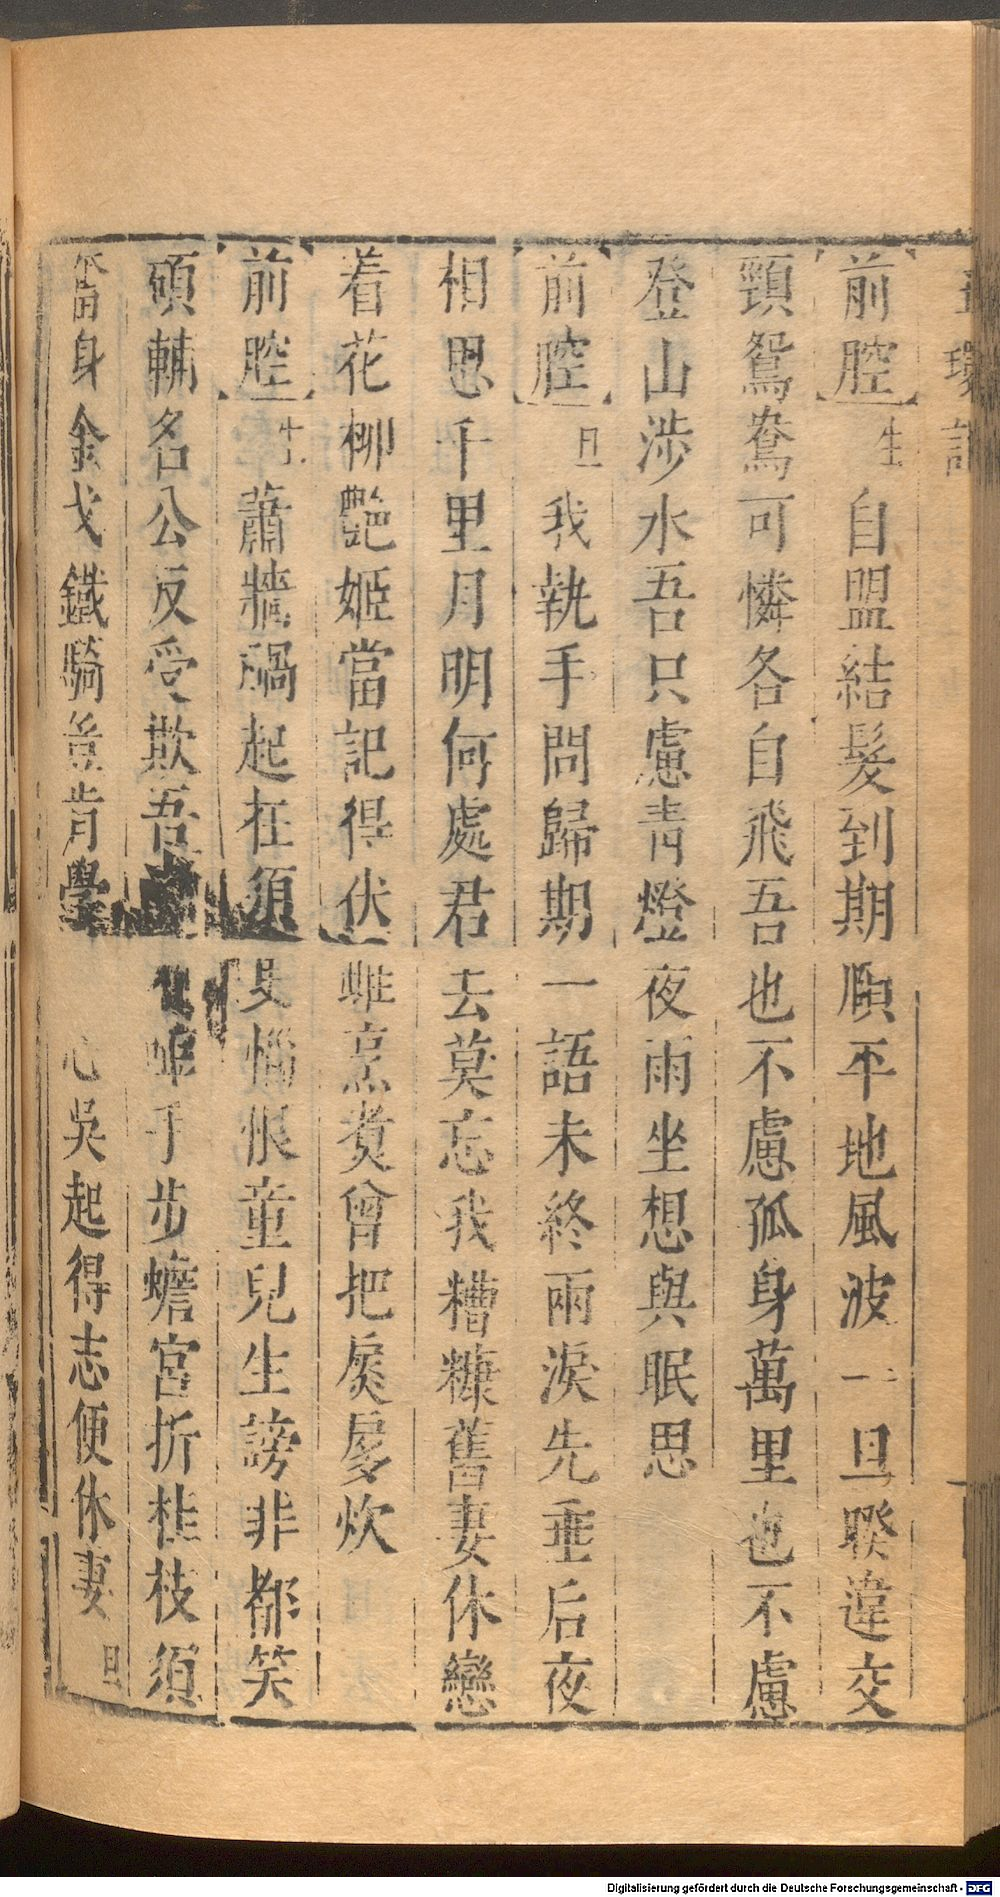 環記
【前腔】生 自盟結髮到期願平地風波一旦睽違交
頸鴛鴦可憐各自飛吾也不慮孤身萬里也不慮
登山涉水吾只慮青燈夜雨坐想與眠思
【前腔】旦 我執手問歸期一語未終兩淚先垂后夜
相思千里月明何處君去莫忘我糟糠舊妻休戀
着花柳艷姬當記得伏雌烹煑曾把扊扅炊
【前腔】生 蕭牆禍起在須臾惱恨童兒生謗非都笑
碩輔名公反受欺吾 唯手步蟾宮折桂枝須
當身金戈鐵騎豈肯學 心吳起得志便休妻 旦
Digitalisierung gefördert durch die Deutsche Forschungsgemeinschaft - DFG